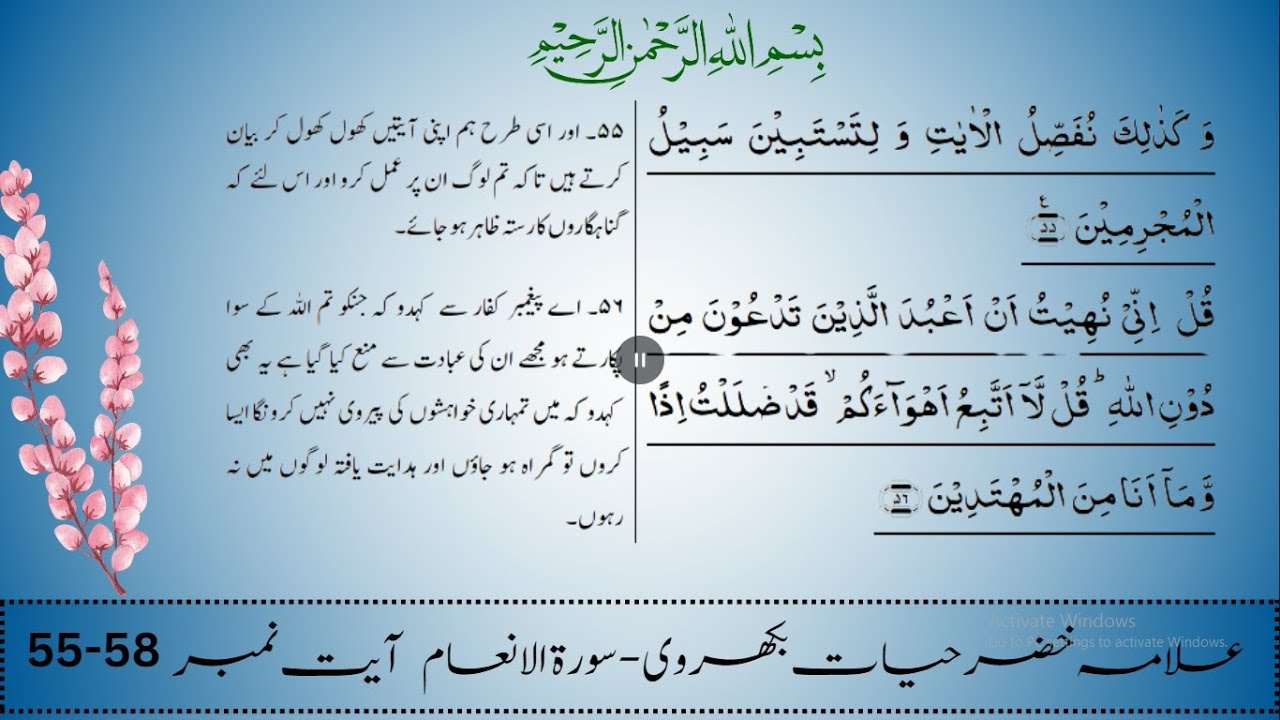 بِسْمِ اللهِ الرَّحْمٰنِ الرَّحِيْمِ
وَ كَذٰلِكَ نُفَصِّلُ الْاٰيٰتِ وَ لِتَسْتَبِيْنَ سَبِيْلُ
الْمُجْرِمِيْنَ ﴿۵۵﴾ ع
قُلْ اِنِّیْ نُهِيْتُ اَنْ اَعْبُدَ الَّذِيْنَ تَدْعُوْنَ مِنْ
دُوْنِ اللّٰهِ ؕ قُلْ لَّاۤ اَتَّبِعُ اَهْوَآءَكُمْ ۙ قَدْ ضَلَلْتُ اِذًا
وَّ مَاۤ اَنَا مِنَ الْمُهْتَدِيْنَ ﴿۵۶﴾
۵۵۔ اور اسی طرح ہم اپنی آیتیں کھول کھول کر بیان
کرتے ہیں تاکہ تم لوگ ان پر عمل کرو اور اس لئے کہ
گناہگاروں کا رستہ ظاہر ہو جائے۔
۵۶۔ اے پیغمبر کفار سے کہدو کہ جنکو تم اللہ کے سوا
پکارتے ہو مجھے ان کی عبادت سے منع کیا گیا ہے یہ بھی
کہدو کہ میں تمہاری خواہشوں کی پیروی نہیں کرونگا ایسا
کروں تو گمراہ ہو جاؤں اور ہدایت یافتہ لوگوں میں نہ
رہوں۔
علامہ خضر حیات بکھروی-سورۃ الانعام آیت نمبر 55-58
Activate Windows
Go to PC settings to activate Windows.